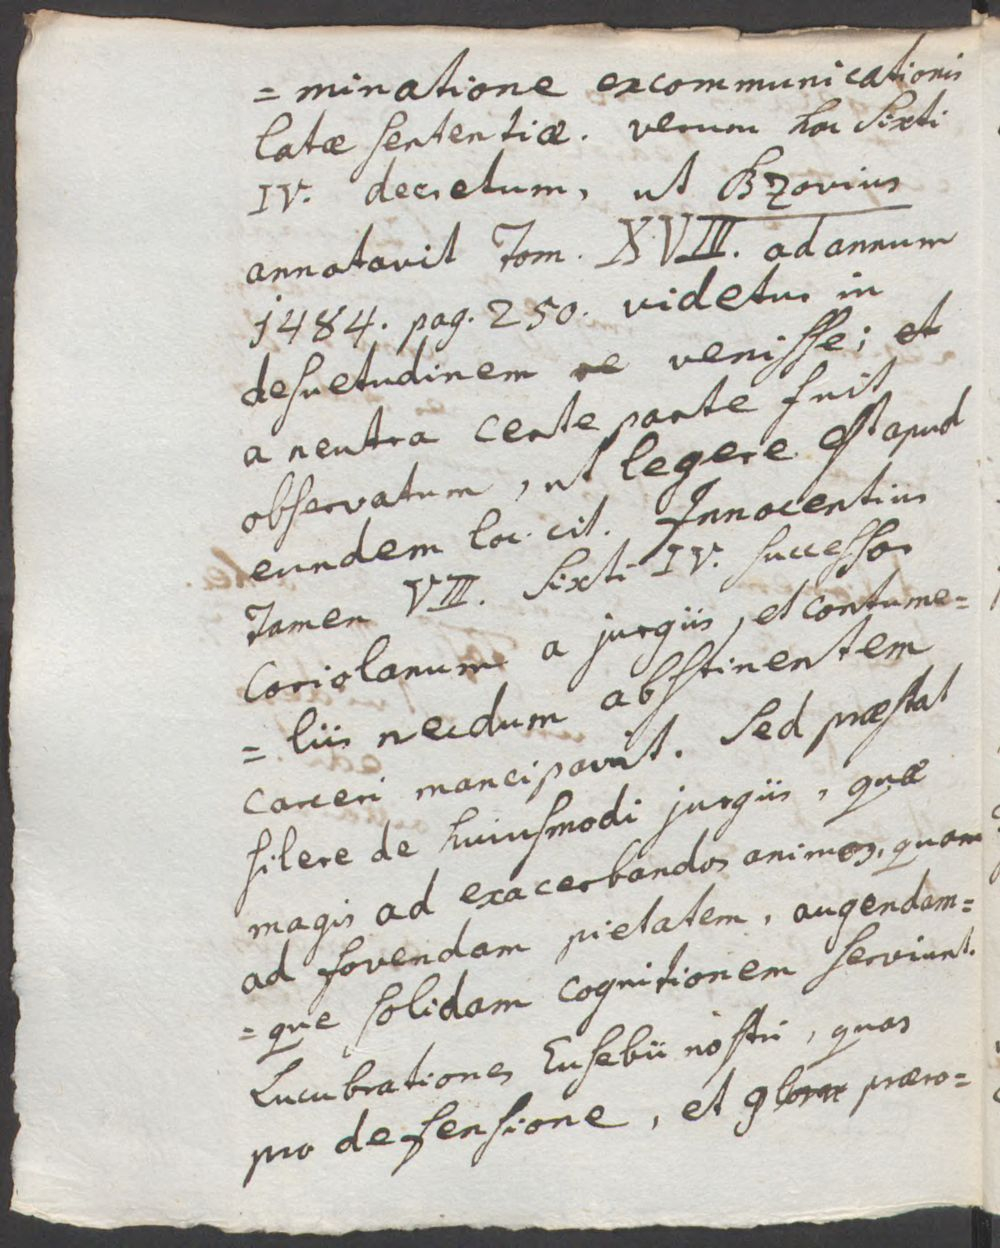 = minatione excommunicationis
latæ sententiæ. verum hoc Sixti
IV. decretum, ut Bzovius
annotavit Tom. XVIII. ad annum
1484. pag. 250. videtur in
desuetudinem venisse; et
a neutra certe parte fuit
observatum, ut legere est apud
eundem loc. cit. Innocentius
tamen VIII. Sixti IV. successor
Coriolanum a jurgiis, et contume=
= liis necdum abstinentem
carceri mancipavit. Sed præstat
silere de huiusmodi jurgiis, quæ
magis ad exacerbandos animos, quam
ad fovendam pietatem, augendam=
= que solidam cognitionem serviunt.
Lucubrationes Eusebii nostri, quas
pro defensione, et præro=